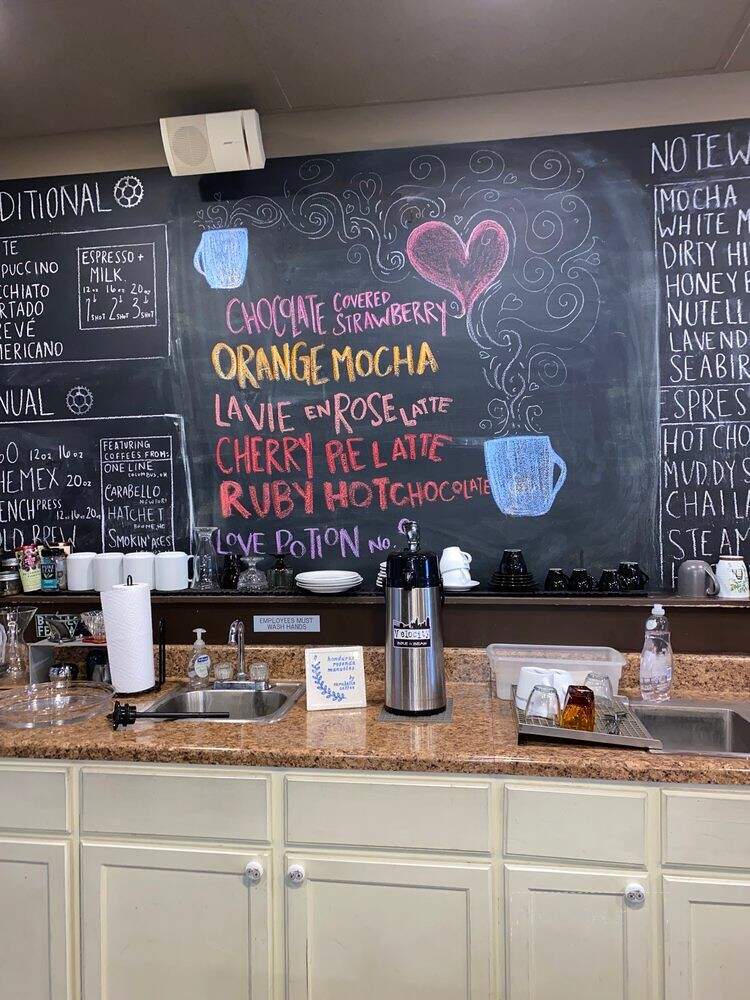 DITIONAL
TE
PUCCINO
CCHIATO
RTADO
REVÉ
MERICANO
ESPRESSO +
MILK
12oz 16oz 20oz
1 SHOT 2 SHOT 3 SHOT
NUAL
O 12oz 16oz
HEMEX 20oz
ENCH PRESS
12oz 16oz 20oz
OLD BREW
FEATURING
COFFEES FROM:
ONE LINE
COLUMBUS, OH
CARABELLO
NEWPORT
HATCHET
BOONE, NC
SMOKIN' ACES
CHOCOLATE COVERED
STRAWBERRY
ORANGE MOCHA
LA VIE EN ROSE LATTE
CHERRY PIE LATTE
RUBY HOT CHOCOLATE
LOVE POTION NO.
NOTEW
MOCHA
WHITE M
DIRTY HI
HONEY B
NUTELL
LAVEND
SEABIR
ESPRES
HOT CHO
MUDDY S
CHAI LA
STEAM
EMPLOYEES MUST
WASH HANDS
honduras
rosenda
manueles
by
carabello
coffee
Velocity